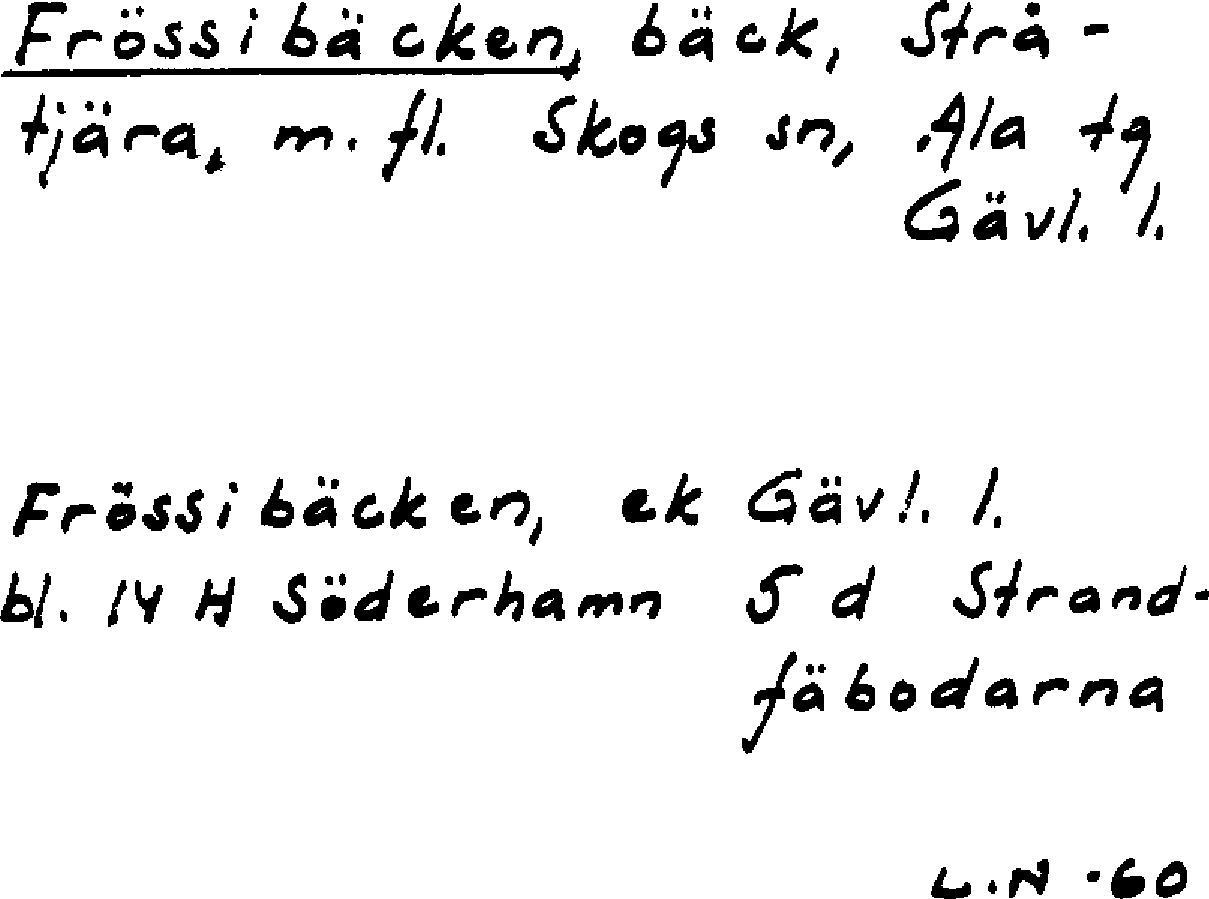 Frössibäcken, bäck, Strå-
tjära, m. fl. Skogs sn, Ala tg
Gävl. l.
Frössibäcken, ek Gävl. l.
bl. 14 H Söderhamn 5 d Strand-
fäbodarna
L.N -60